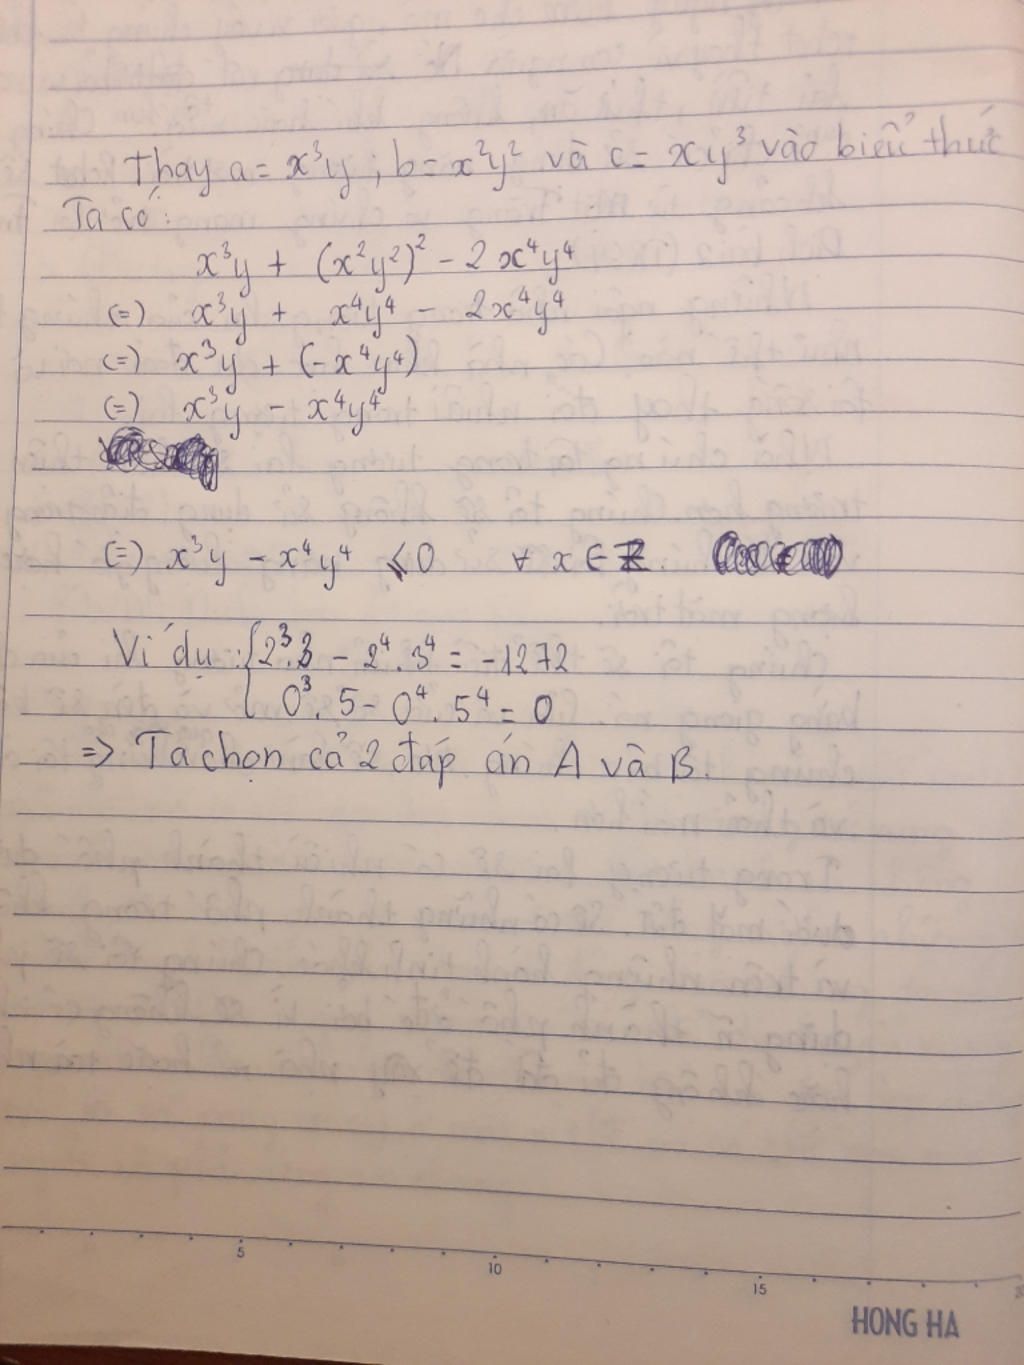 Thay a = x³y ; b = x²y² và c = xy³ vào biểu thức
Ta có :
x³y + (x²y²)² - 2x⁴y⁴
(=) x³y + x⁴y⁴ - 2x⁴y⁴
(=) x³y + (-x⁴y⁴)
(=) x³y - x⁴y⁴
(=) x³y - x⁴y⁴ ⩽ 0 ∀ x ∈ Z.
Ví dụ : { 2³.3 - 2⁴.3⁴ = -1272
0³.5 - 0⁴.5⁴ = 0
=> Ta chọn cả 2 đáp án A và B.
5
10
15
HONG HA